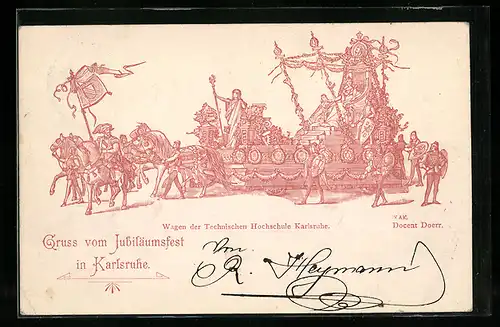 Wagen der Technischen Hochschule Karlsruhe.
Docent Doerr.
Gruss vom Jubiläumsfest
in Karlsruhe.
von
R. Heymann